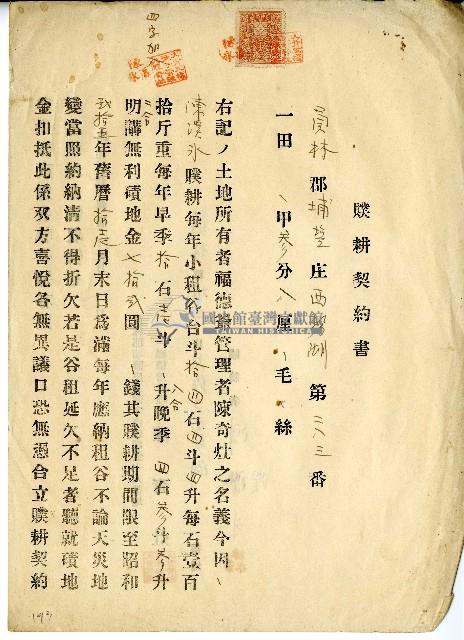 贌耕契約書
員林郡埔塩庄西勢湖第二八三番
一田、甲參分八厘、毛、絲
右記ノ土地所有者福德爺管理者陳奇灶之名義今因、
陳漢水贌耕每年小租谷台斗拾四石四斗四升每石壹百
拾斤重每年早季拾石壹斗、升晚季四石參斗參升
明講無利磧地金七拾貳圓、錢其贌耕期間限至昭和
貳拾五年舊曆拾壹月末日為滿每年應納租谷不論天災地
變當照約納清不得折欠若是谷租延欠不足者聽就磧地
金扣抵此係双方喜悅各無異議口恐無憑台立贌耕契約
四字加入
國史館臺灣文獻館
TAIWAN HISTORICA